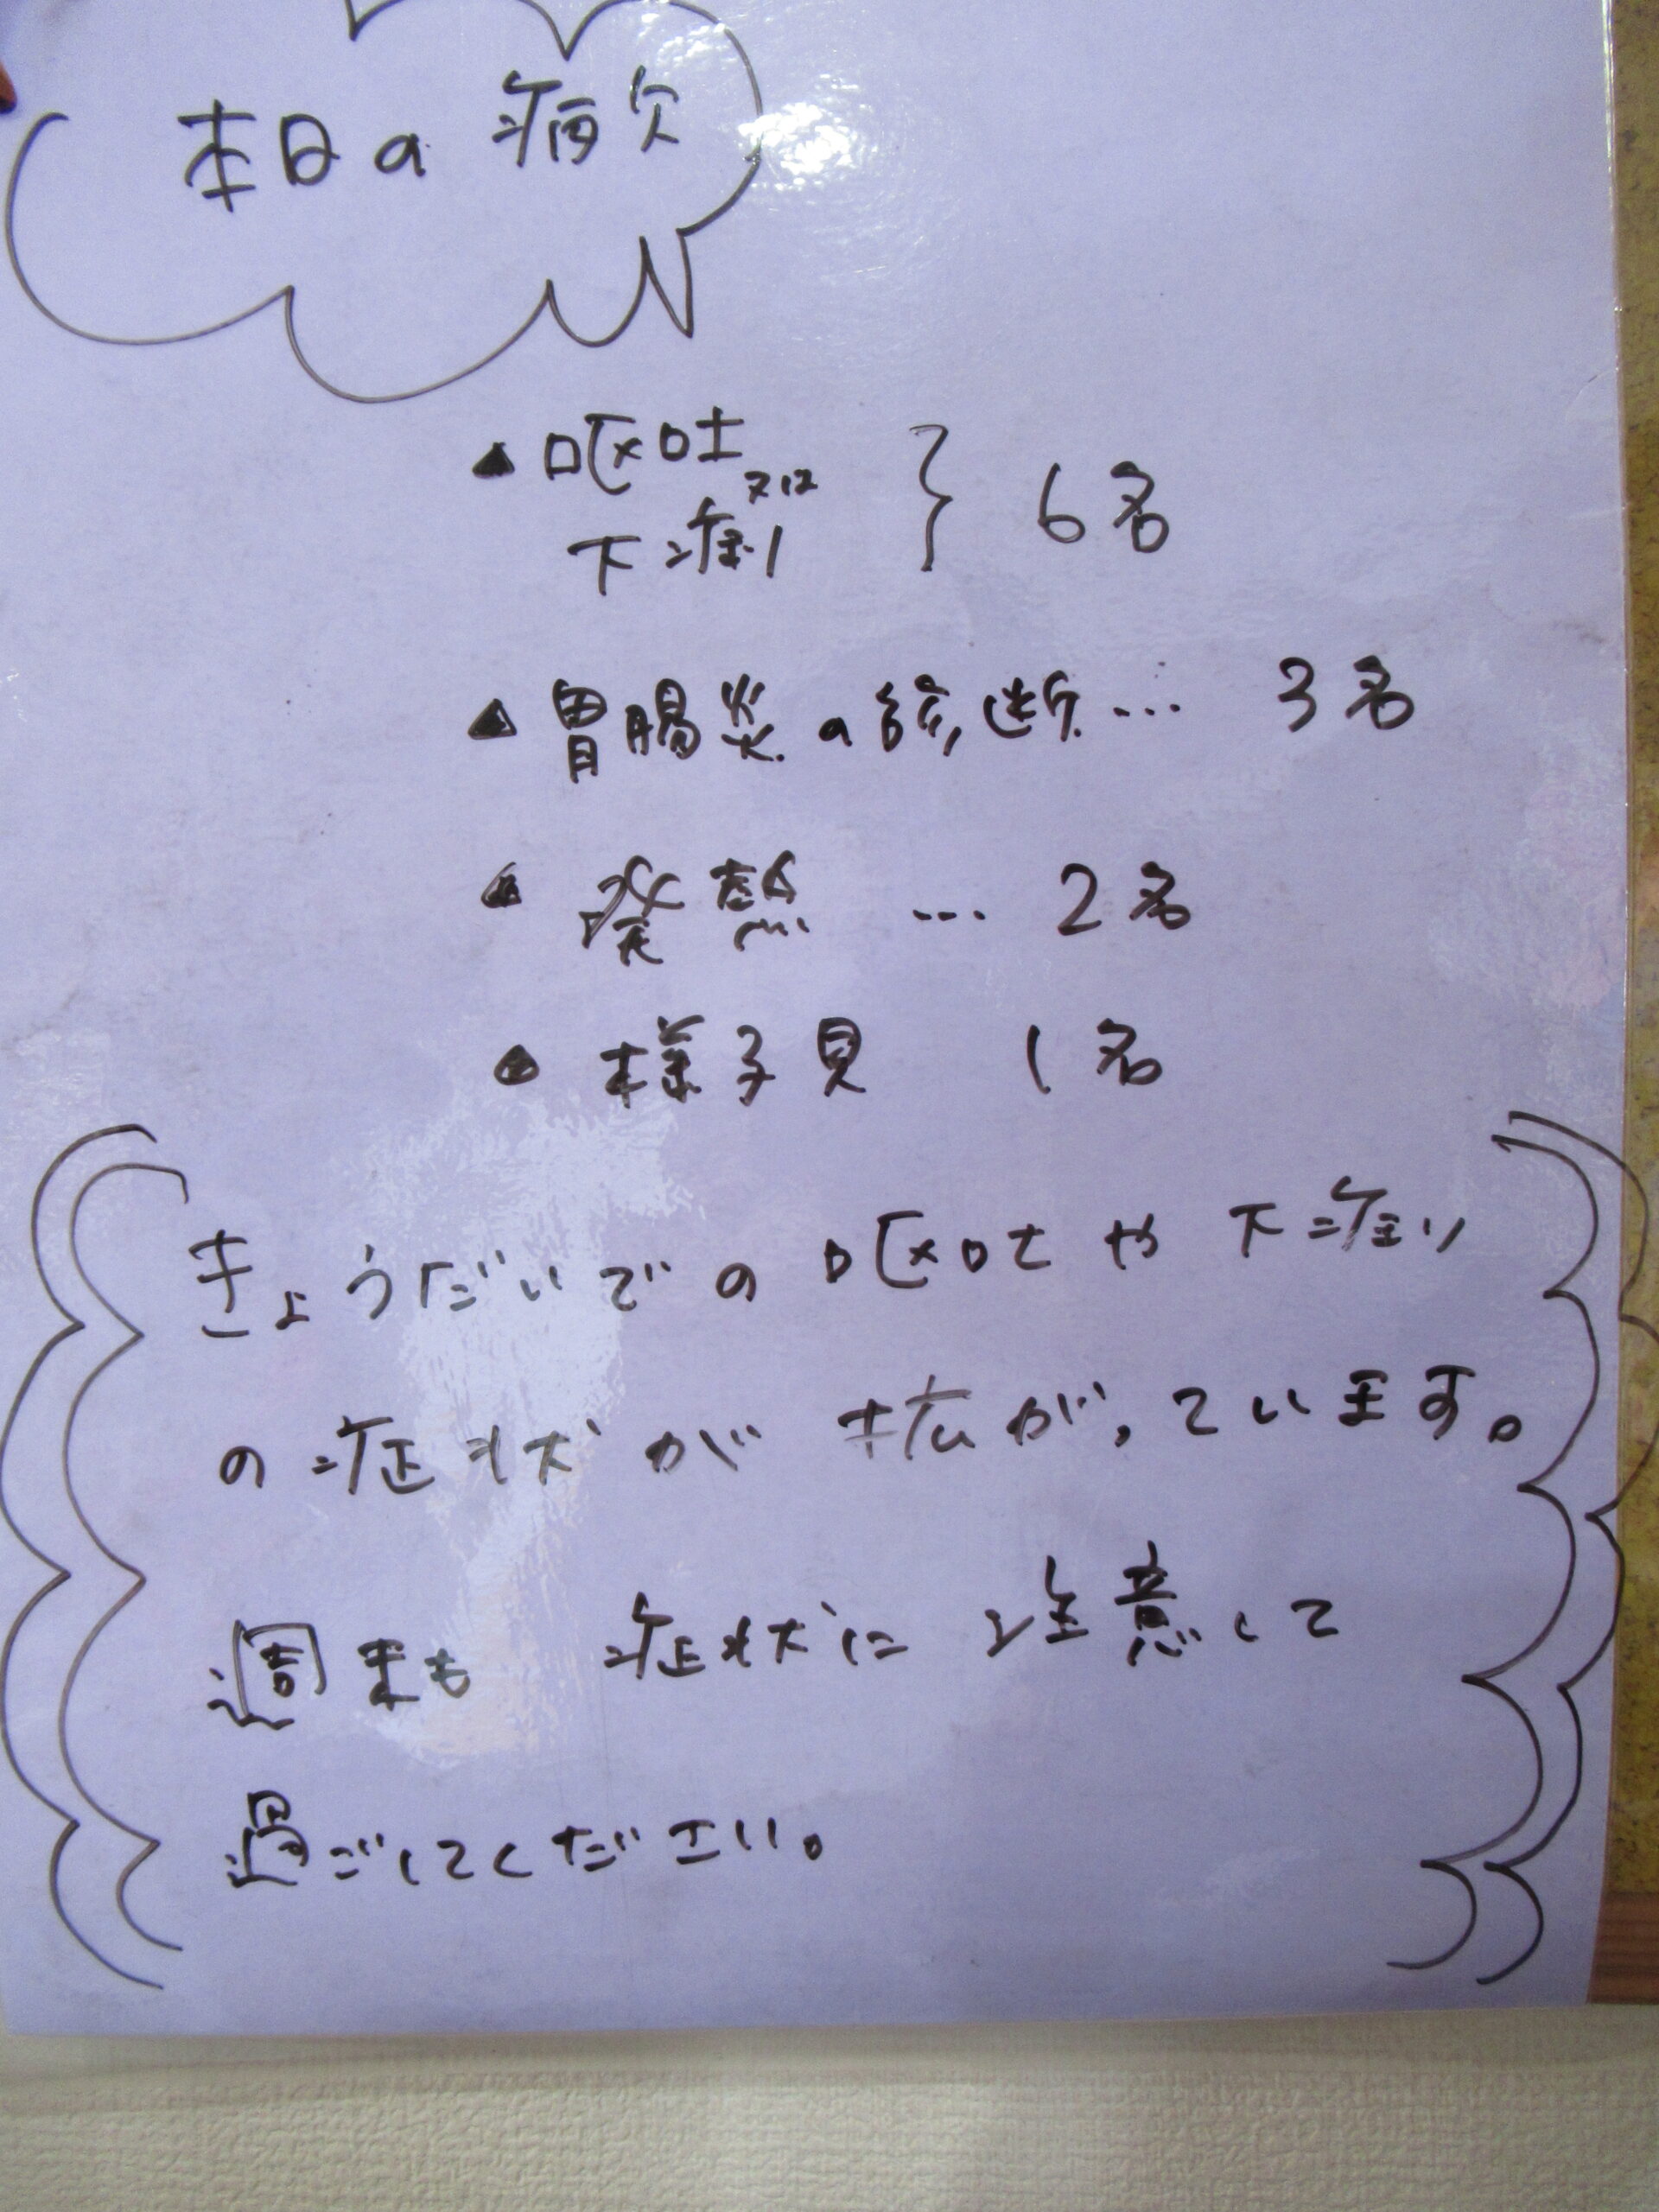 本日の病欠
・嘔吐
又は
下痢 } 6名
・胃腸炎の診断… 3名
・発熱 … 2名
・様子見 1名
きょうだいでの嘔吐や下痢
の症状が拡がっています。
週末も 症状に注意して
過ごしてください。